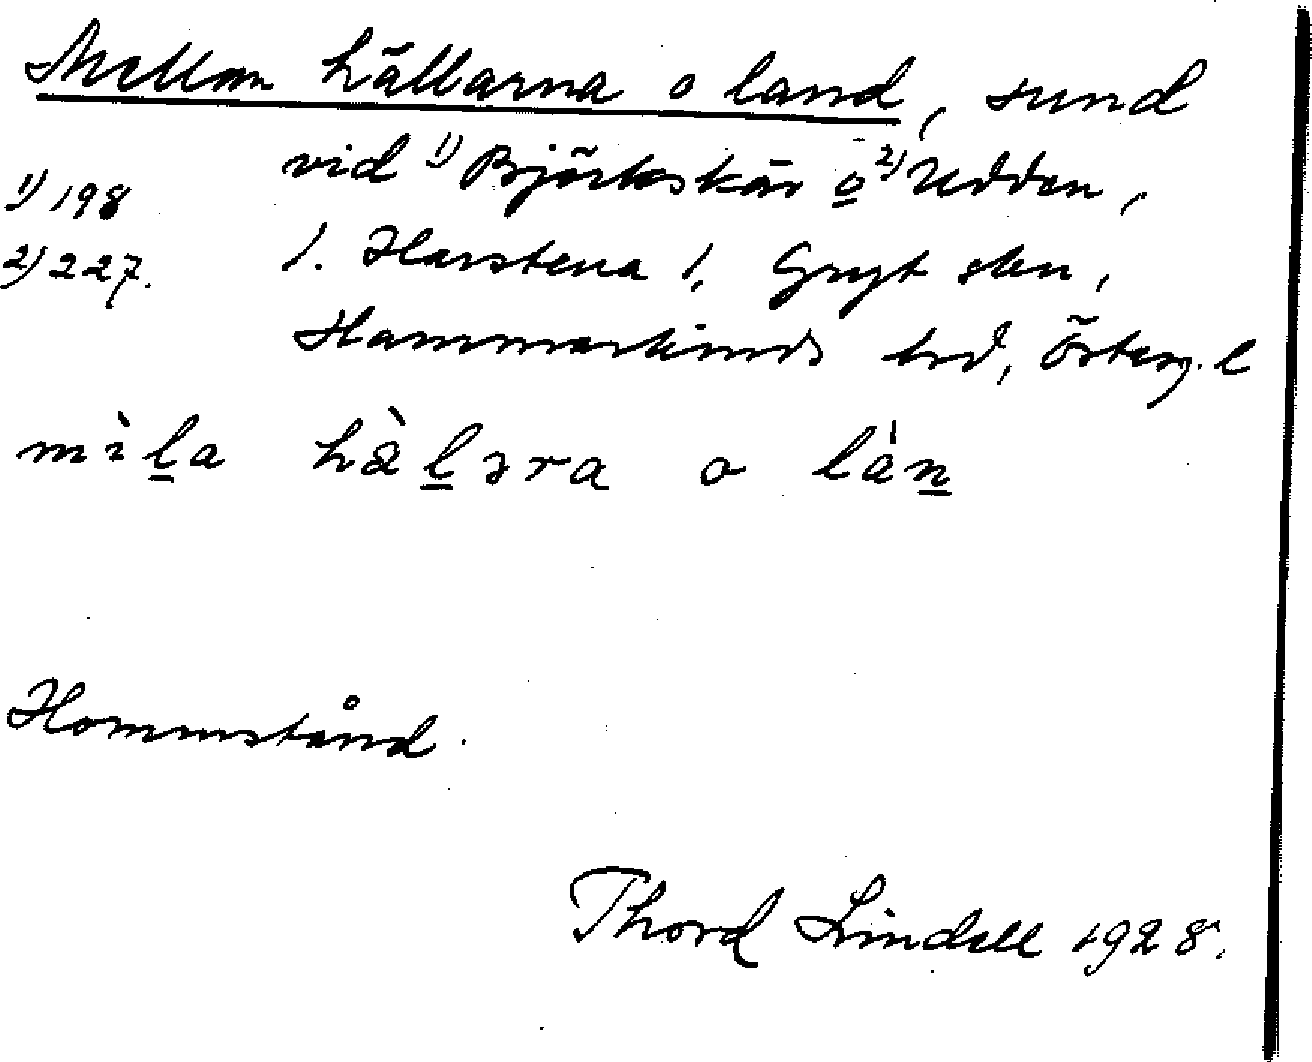 Mellan hällarna o land, sund
vid 1) Björkskär o 2) Udden,
1) 198
2) 227.
1. Harstena 1, Gryt skn,
Hammarkinds hrd, Österg. l
mìla hàləra o lán
Hommstånd.
Thord Lindell 1928.